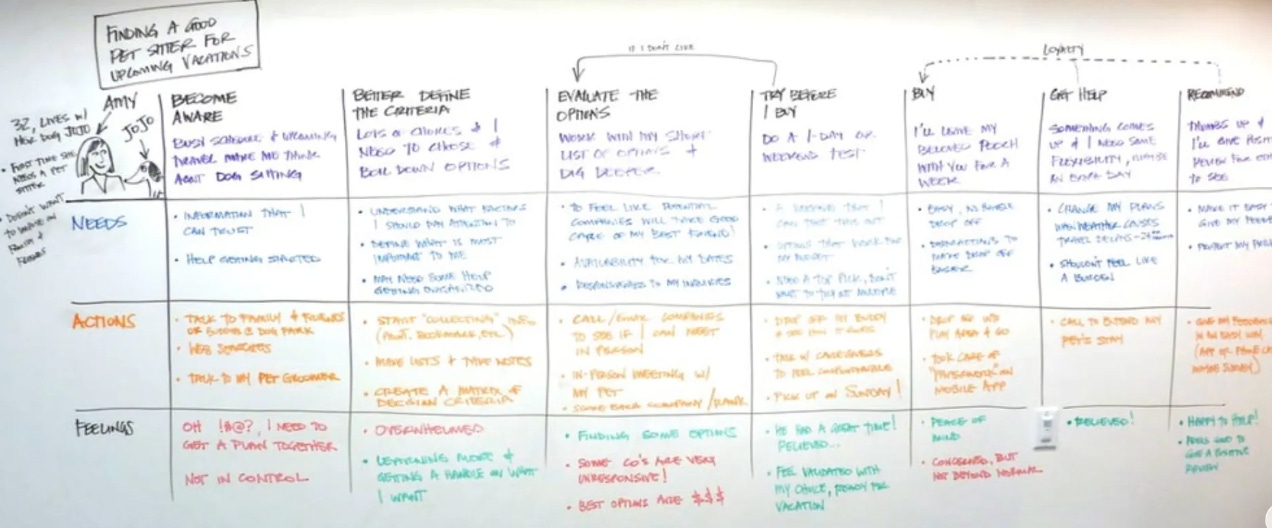 FINDING A GOOD
PET SITTER FOR
UPCOMING VACATIONS
AMY
JOJO
32, LIVES W/
HER DOG JOJO
• FIRST TIME SHE
NEEDS A PET
SITTER
• DOESN'T WANT
TO IMPOSE ON
FAMILY &
FRIENDS
IF I DON'T LIKE
LOYALTY
BECOME
AWARE
BUSY SCHEDULE & UPCOMING
TRAVEL MAKE ME THINK
ABOUT DOG SITTING
BETTER DEFINE
THE CRITERIA
LOTS OF CHOICES & I
NEED TO CHOOSE &
BOIL DOWN OPTIONS
EVALUATE THE
OPTIONS
WORK WITH MY SHORT
LIST OF OPTIONS &
DIG DEEPER
TRY BEFORE
I BUY
DO A 1-DAY OR
WEEKEND TEST
BUY
I'LL LEAVE MY
BELOVED POOCH
WITH YOU FOR A
WEEK
GET HELP
SOMETHING COMES
UP & I NEED SOME
FLEXIBILITY, MAYBE
AN EXTRA DAY
RECOMMEND
THUMBS UP &
I'LL GIVE
REVIEW FOR
TO SEE
NEEDS
• INFORMATION THAT I
CAN TRUST
• HELP GETTING STARTED
• UNDERSTAND WHAT FACTORS
I SHOULD PAY ATTENTION TO
• DEFINE WHAT IS MOST
IMPORTANT TO ME
• MAY NEED SOME HELP
GETTING ORGANIZED
• TO FEEL LIKE POTENTIAL
COMPANIES WILL TAKE GOOD
CARE OF MY BEST FRIEND!
• AVAILABILITY FOR MY DATES
• RESPONSIVENESS TO MY INQUIRIES
• A THAT I
CAN THIS OUT
• OPTIONS THAT WORK FOR
MY BUDGET
• NEED A TOP PICK, DON'T
WANT TO MULTIPLE
• EASY, NO HASSLE
DROP OFF
• DISTRACTIONS TO
MAKE DROP OFF
EASIER
• CHANGE MY PLANS
WHEN WEATHER CAUSES
TRAVEL DELAYS
• SHOULDN'T FEEL LIKE
A BURDEN
• MAKE IT EASY
GIVE MY
• PROTECT MY
ACTIONS
• TALK TO FAMILY & FRIENDS
OR @ DOG PARK
• WEB SEARCHES
• TALK TO MY PET GROOMER
• START "COLLECTING" INFO
(PRINT, BOOKMARK, ETC.)
• MAKE LISTS & TAKE NOTES
• CREATE A MATRIX OF
DECISION CRITERIA
• CALL/EMAIL COMPANIES
TO SEE IF I CAN MEET
IN PERSON
• IN-PERSON MEETING W/
MY PET
• SCORE EACH COMPANY/RANK
• DROP OFF MY BUDDY
& SEE HOW IT GOES
• TALK W/ CAREGIVERS
TO FEEL COMFORTABLE
• PICK UP ON SUNDAY!
• DROP OFF INTO
PLAY AREA & GO
• TOOK CARE OF
"PAPERWORK" ON
MOBILE APP
• CALL TO EXTEND MY
PET'S STAY
• GIVE MY FEEDBACK
IN AN EASY WAY
(APP OR PHONE
MAYBE SURVEY)
FEELINGS
OH !#@?, I NEED TO
GET A PLAN TOGETHER
NOT IN CONTROL
• OVERWHELMED
• LEARNING MORE &
GETTING A HANDLE ON WHAT
I WANT
• FINDING SOME OPTIONS
• SOME CO'S ARE VERY
UNRESPONSIVE!
• BEST OPTIONS ARE $$$
• HE HAD A GREAT TIME!
RELIEVED...
• FEEL VALIDATED WITH
MY CHOICE, READY FOR
VACATION
• PEACE OF
MIND
• CONCERNED, BUT
NOT BEYOND NORMAL
• RELIEVED!
• HAPPY TO HELP!
• FEELS GOOD TO
GIVE A POSITIVE
REVIEW